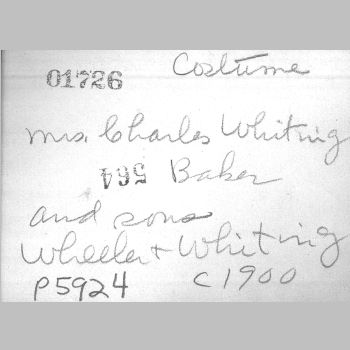 Costume
01726
Mrs. Charles Whiting
564 Baker
and sons
Wheeler + Whiting
P5924 C1900